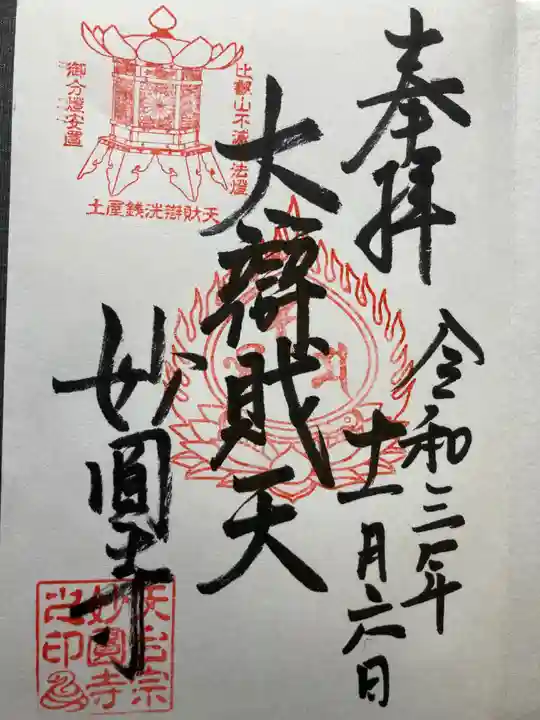 奉拝
令和三年
十一月六日
大辯財天
妙圓寺
比叡山不滅法燈
御分燈安置
土屋銭洗辯財天
天台宗
妙圓寺
之印